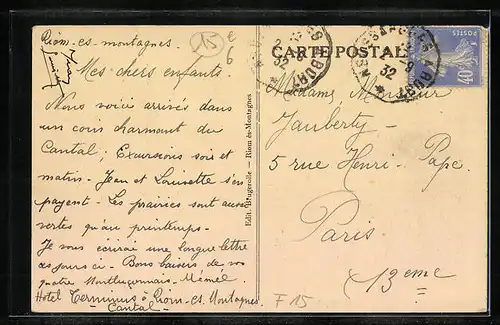 Riom-es-montagnes.
15 €
6
Mes chers enfants.
Nous voici arrivés dans
un coin charmant du
Cantal; Excursions soir et
matin - Jean et Louisette s'en
payent - Les prairies sont aussi
vertes qu'au printemps -
Je vous écrirai une longue lettre
ces jours ci - Bons baisers de vos
quatre Montluçonnais - Mémél
Hotel Terminus à Riom-es-Montagnes
- Cantal -
Edit. Brugerolle - Riom-ès-Montagnes
CARTE POSTALE
2 - 9
32
2 - 9
32
POSTES
40
Madame, Monsieur
Jauberty -
5 rue Henri - Pape.
Paris
13eme
F 15